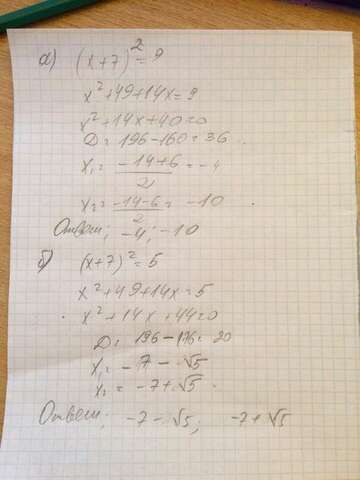 а) (x+7)² = 9
x² + 49 + 14x = 9
x² + 14x + 40 = 0
D = 196 - 160 = 36
x₁ = (-14+6)/2 = -4
x₂ = (-14-6)/2 = -10
Ответ: -4; -10
б) (x+7)² = 5
x² + 49 + 14x = 5
x² + 14x + 44 = 0
D = 196 - 176 = 20
x₁ = -7 - √5
x₂ = -7 + √5
Ответ: -7 - √5; -7 + √5